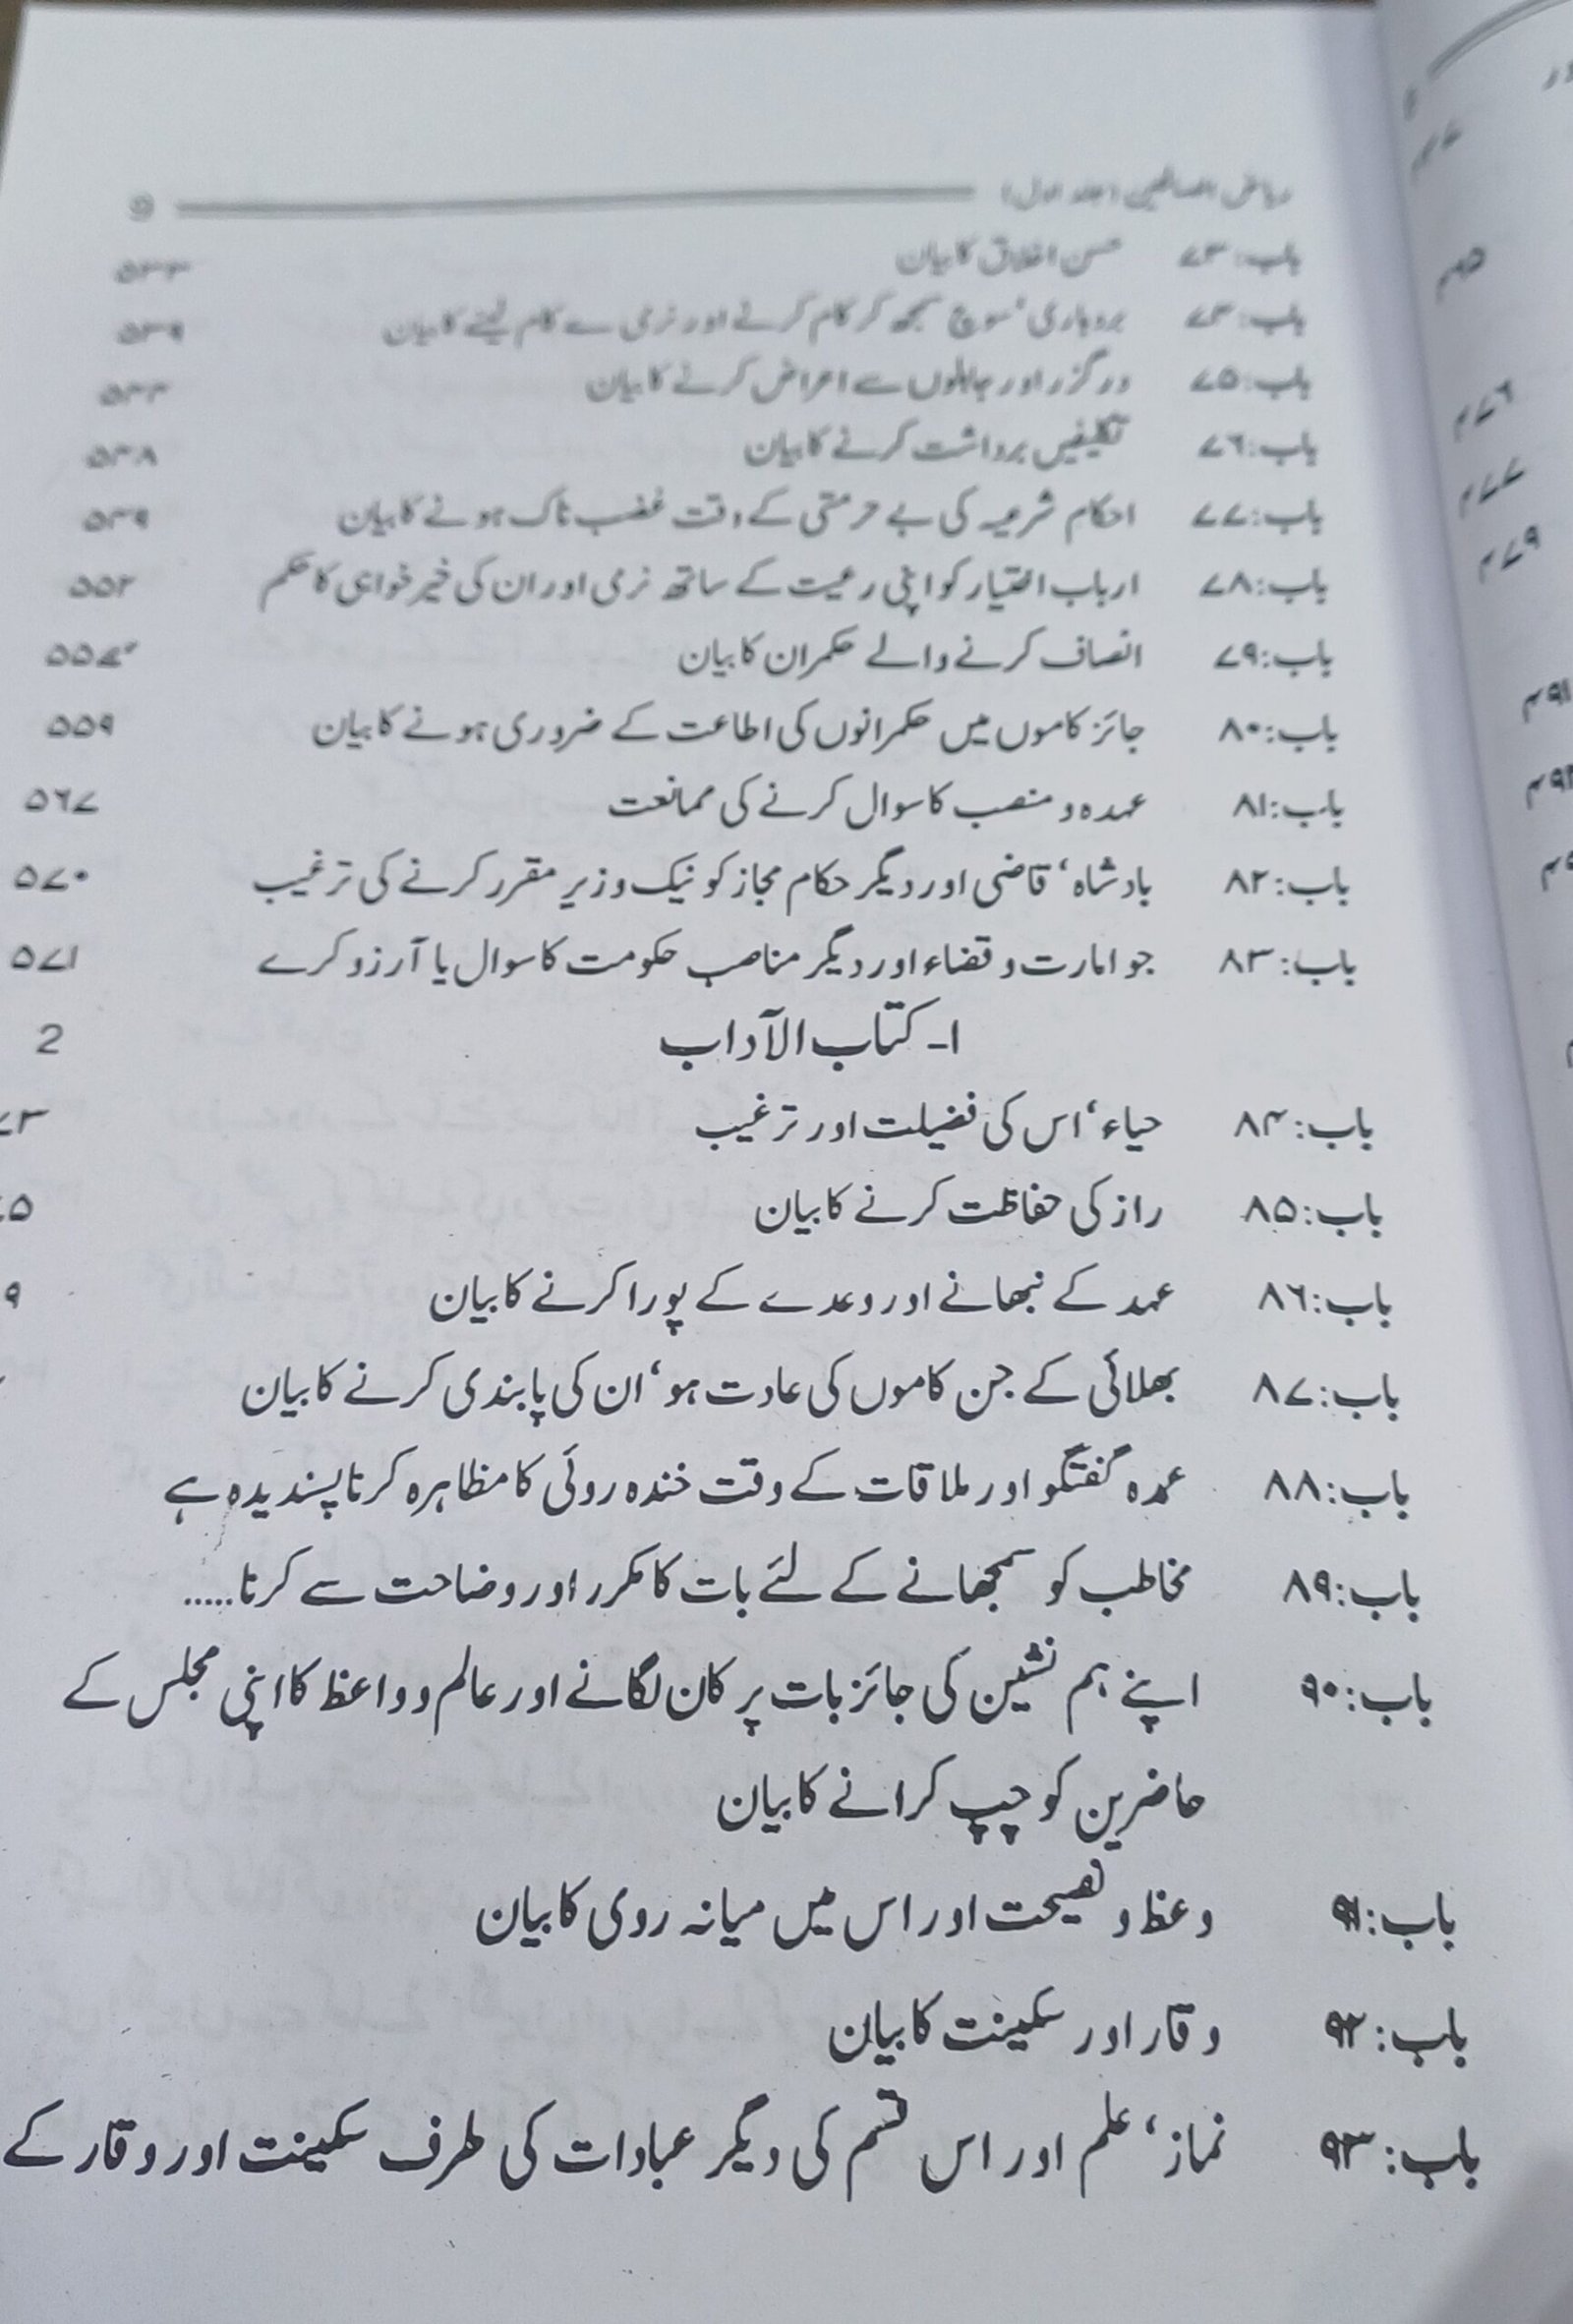 ریاض الصالحین (جلد اول) 9
باب: ۷۳ حسن اخلاق کا بیان ۵۳۳
باب: ۷۴ بردباری‘ سوچ سمجھ کر کام کرنے اور نرمی سے کام لینے کا بیان ۵۳۹
باب: ۷۵ درگزر اور جاہلوں سے اعراض کرنے کا بیان
باب: ۷۶ تکلیفیں برداشت کرنے کا بیان ۵۴۸
باب: ۷۷ احکام شرعیہ کی بے حرمتی کے وقت غضب ناک ہونے کا بیان ۵۴۹
باب: ۷۸ ارباب اختیار کو اپنی رعیت کے ساتھ نرمی اور ان کی خیر خواہی کا حکم ۵۵۲
باب: ۷۹ انصاف کرنے والے حکمران کا بیان ۵۵۷
باب: ۸۰ جائز کاموں میں حکمرانوں کی اطاعت کے ضروری ہونے کا بیان ۵۵۹
باب: ۸۱ عہدہ و منصب کا سوال کرنے کی ممانعت ۵۶۷
باب: ۸۲ بادشاہ‘ قاضی اور دیگر حکام مجاز کو نیک وزیر مقرر کرنے کی ترغیب ۵۷۰
باب: ۸۳ جو امارت و قضاء اور دیگر مناصب حکومت کا سوال یا آرزو کرے ۵۷۱
۱۔ کتاب الآداب 2
باب: ۸۴ حیاء‘ اس کی فضیلت اور ترغیب ۷۳
باب: ۸۵ راز کی حفاظت کرنے کا بیان ۵
باب: ۸۶ عہد کے نبھانے اور وعدے کے پورا کرنے کا بیان ۹
باب: ۸۷ بھلائی کے جن کاموں کی عادت ہو‘ ان کی پابندی کرنے کا بیان
باب: ۸۸ عمدہ گفتگو اور ملاقات کے وقت خندہ روئی کا مظاہرہ کرنا پسندیدہ ہے
باب: ۸۹ مخاطب کو سمجھانے کے لئے بات کا مکرر اور وضاحت سے کرنا.....
باب: ۹۰ اپنے ہم نشین کی جائز بات پر کان لگانے اور عالم و واعظ کا اپنی مجلس کے
حاضرین کو چپ کرانے کا بیان
باب: ۹۱ وعظ و نصیحت اور اس میں میانہ روی کا بیان
باب: ۹۲ وقار اور سکینت کا بیان
باب: ۹۳ نماز‘ علم اور اس قسم کی دیگر عبادات کی طرف سکینت اور وقار کے